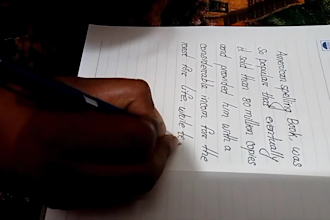 American spelling Book, was
so popular that eventually
it sold than 80 million copies
and provided him with a
considerable incom for the
rest his life. while te